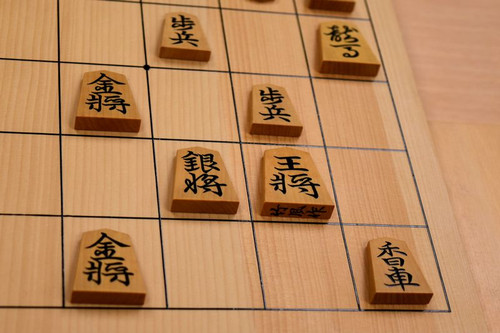 歩兵
龍馬
金将
歩兵
銀将
王将
金将
香車